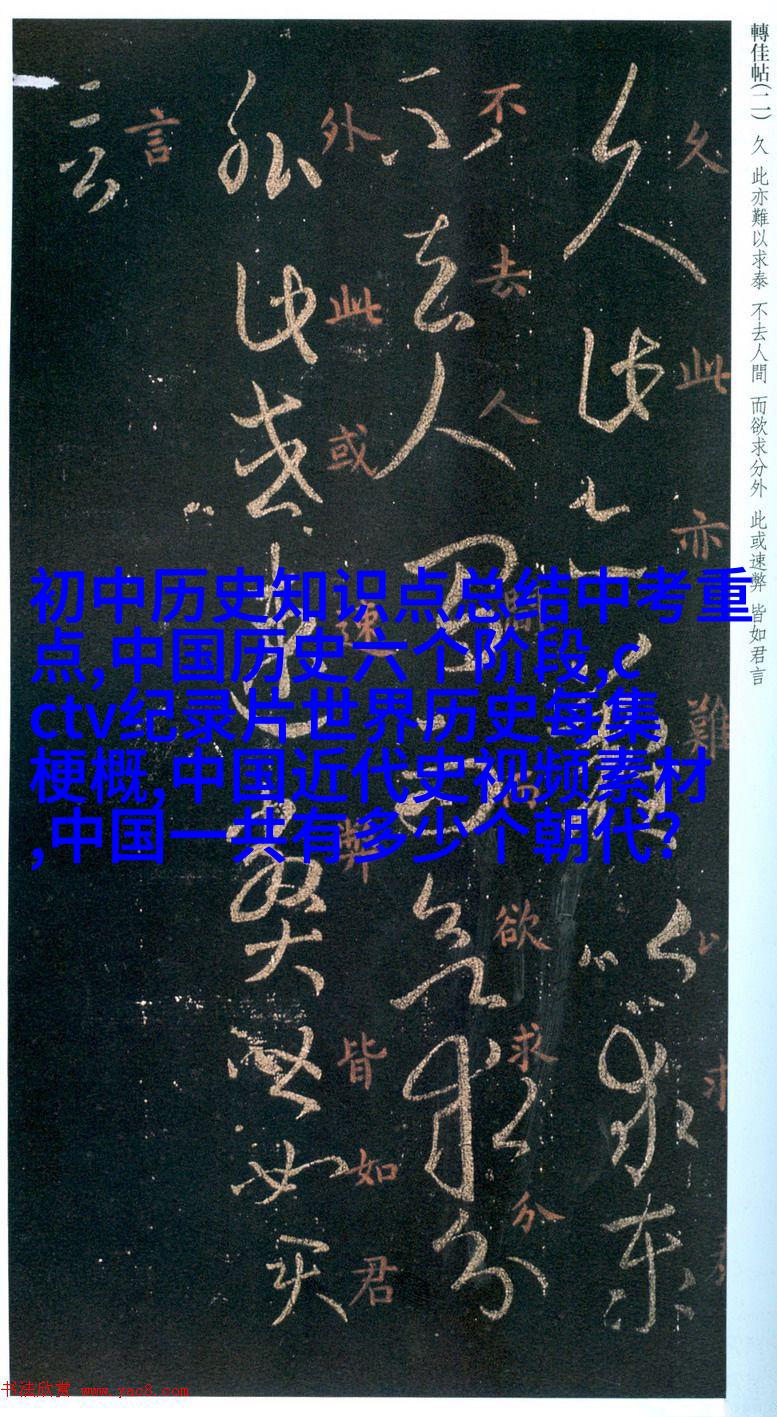 轉佳帖(二) 久 此亦難以求泰 不去人間 而欲求分外 此或速弊 皆如君言
久此亦難以求泰
久此亦難以求
不去人間而欲求分
不去人間而欲求分
外此或速弊皆如君
外此或速弊皆如君
言
言
初中历史知识点总结中考重
点,中国历史六个阶段,c
ctv纪录片世界历史每集
梗概,中国近代史视频素材
,中国一共有多少个朝代?
书法欣赏 www.yac8.com